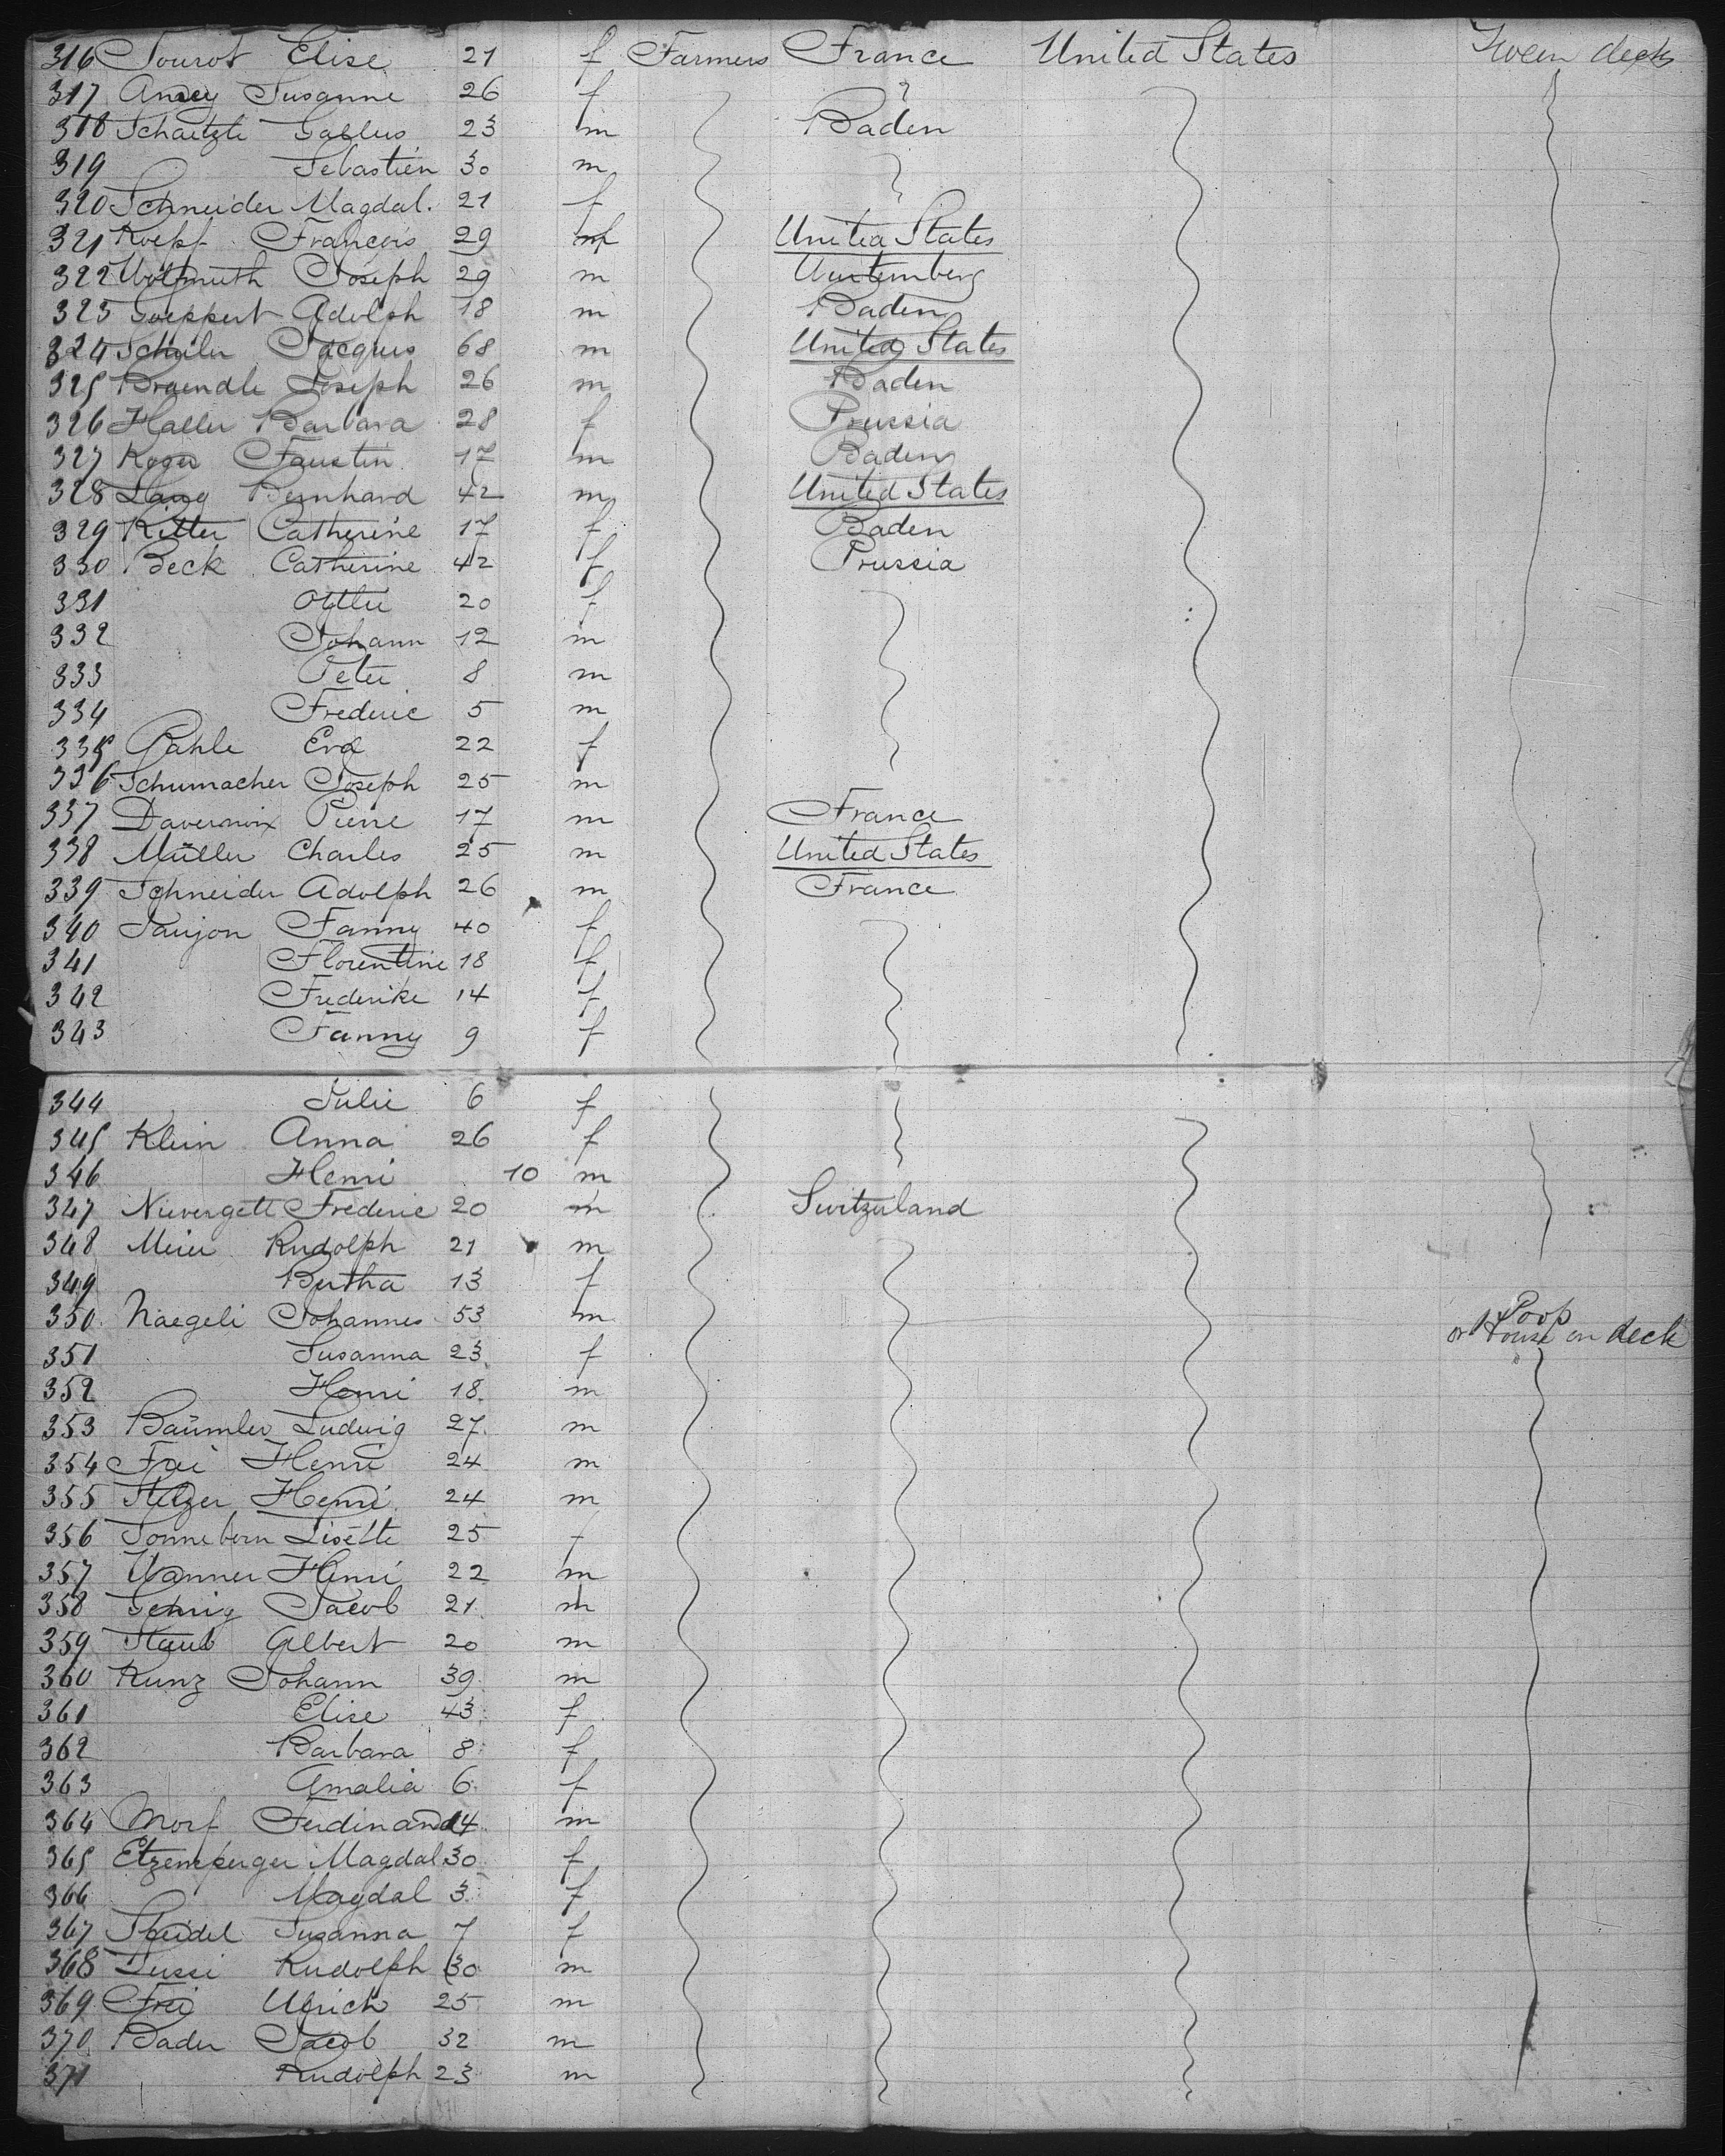 316 Tourot Elise 21 f Farmers France United States Tween decks
317 Susanne 26 f
318 Schaetzle Gallus 23 m Baden
319 Sebastien 30 m
320 Schneider Magdal. 21 f
321 Koepf François 29 m United States
322 Wolfmuth Joseph 29 m Wurtemberg
323 Goeppert Adolph 18 m Baden
324 Schuler Jacques 68 m United States
325 Braendle Joseph 26 m Baden
326 Haller Barbara 28 f Prussia
327 Faustin 17 m Baden
328 Lang Bernhard 42 m United States
329 Ritter Catherine 17 f Baden
330 Beck Catherine 42 f Prussia
331 Ottlie 20 f
332 Johann 12 m
333 Peter 8 m
334 Frederic 5 m
335 Pahle Eva 22 f
336 Schumacher Joseph 25 m
337 Pierre 17 m France
338 Müller Charles 25 m United States
339 Schneider Adolph 26 m France
340 Saujon Fanny 40 f
341 Florentine 18 f
342 Frederike 14 f
343 Fanny 9 f
344 Julie 6 f
345 Klein Anna 26 f
346 Henri 10 m
347 Nievergelt Frederic 20 m Switzerland
348 Meier Rudolph 21 m
349 Bertha 13 f
350 Naegeli Johannes 53 m Poop
or House on deck
351 Susanna 23 f
352 Henri 18 m
353 Baümler Ludwig 27 m
354 Frei Henri 24 m
355 Henri 24 m
356 Sonneborn Lisette 25 f
357 Wanner Henri 22 m
358 Gehrig Jacob 21 m
359 Staub Albert 20 m
360 Kunz Johann 39 m
361 Elise 43 f
362 Barbara 8 f
363 Amalia 6 f
364 Morf Ferdinand 14 m
365 Etzensperger Magdal 30 f
366 Magdal 3 f
367 Susanna 7 f
368 Lussi Rudolph 30 m
369 Frei Ulrich 25 m
370 Bader Jacob 32 m
371 Rudolph 23 m